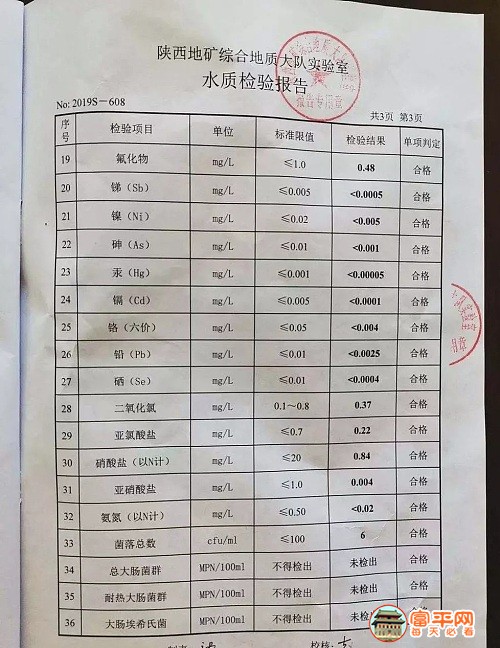 陕西地矿综合地质大队实验室
水质检验报告
报告专用章
No: 2019S－608
共3页 第3页
序号 检验项目 单位 标准限值 检验结果 单项判定
19 氟化物 mg/L ≤1.0 0.48 合格
20 锑（Sb） mg/L ≤0.005 <0.0005 合格
21 镍（Ni） mg/L ≤0.02 <0.005 合格
22 砷（As） mg/L ≤0.01 <0.001 合格
23 汞（Hg） mg/L ≤0.001 <0.00005 合格
24 镉（Cd） mg/L ≤0.005 <0.0001 合格
25 铬（六价） mg/L ≤0.05 <0.004 合格
26 铅（Pb） mg/L ≤0.01 <0.0025 合格
27 硒（Se） mg/L ≤0.01 <0.0004 合格
28 二氧化氯 mg/L 0.1～0.8 0.37 合格
29 亚氯酸盐 mg/L ≤0.7 0.22 合格
30 硝酸盐（以N计） mg/L ≤20 0.84 合格
31 亚硝酸盐 mg/L ≤1.0 0.004 合格
32 氨氮（以N计） mg/L ≤0.50 <0.02 合格
33 菌落总数 cfu/ml ≤100 6 合格
34 总大肠菌群 MPN/100ml 不得检出 未检出 合格
35 耐热大肠菌群 MPN/100ml 不得检出 未检出 合格
36 大肠埃希氏菌 MPN/100ml 不得检出 未检出 合格
校核:
富平网
每天必看